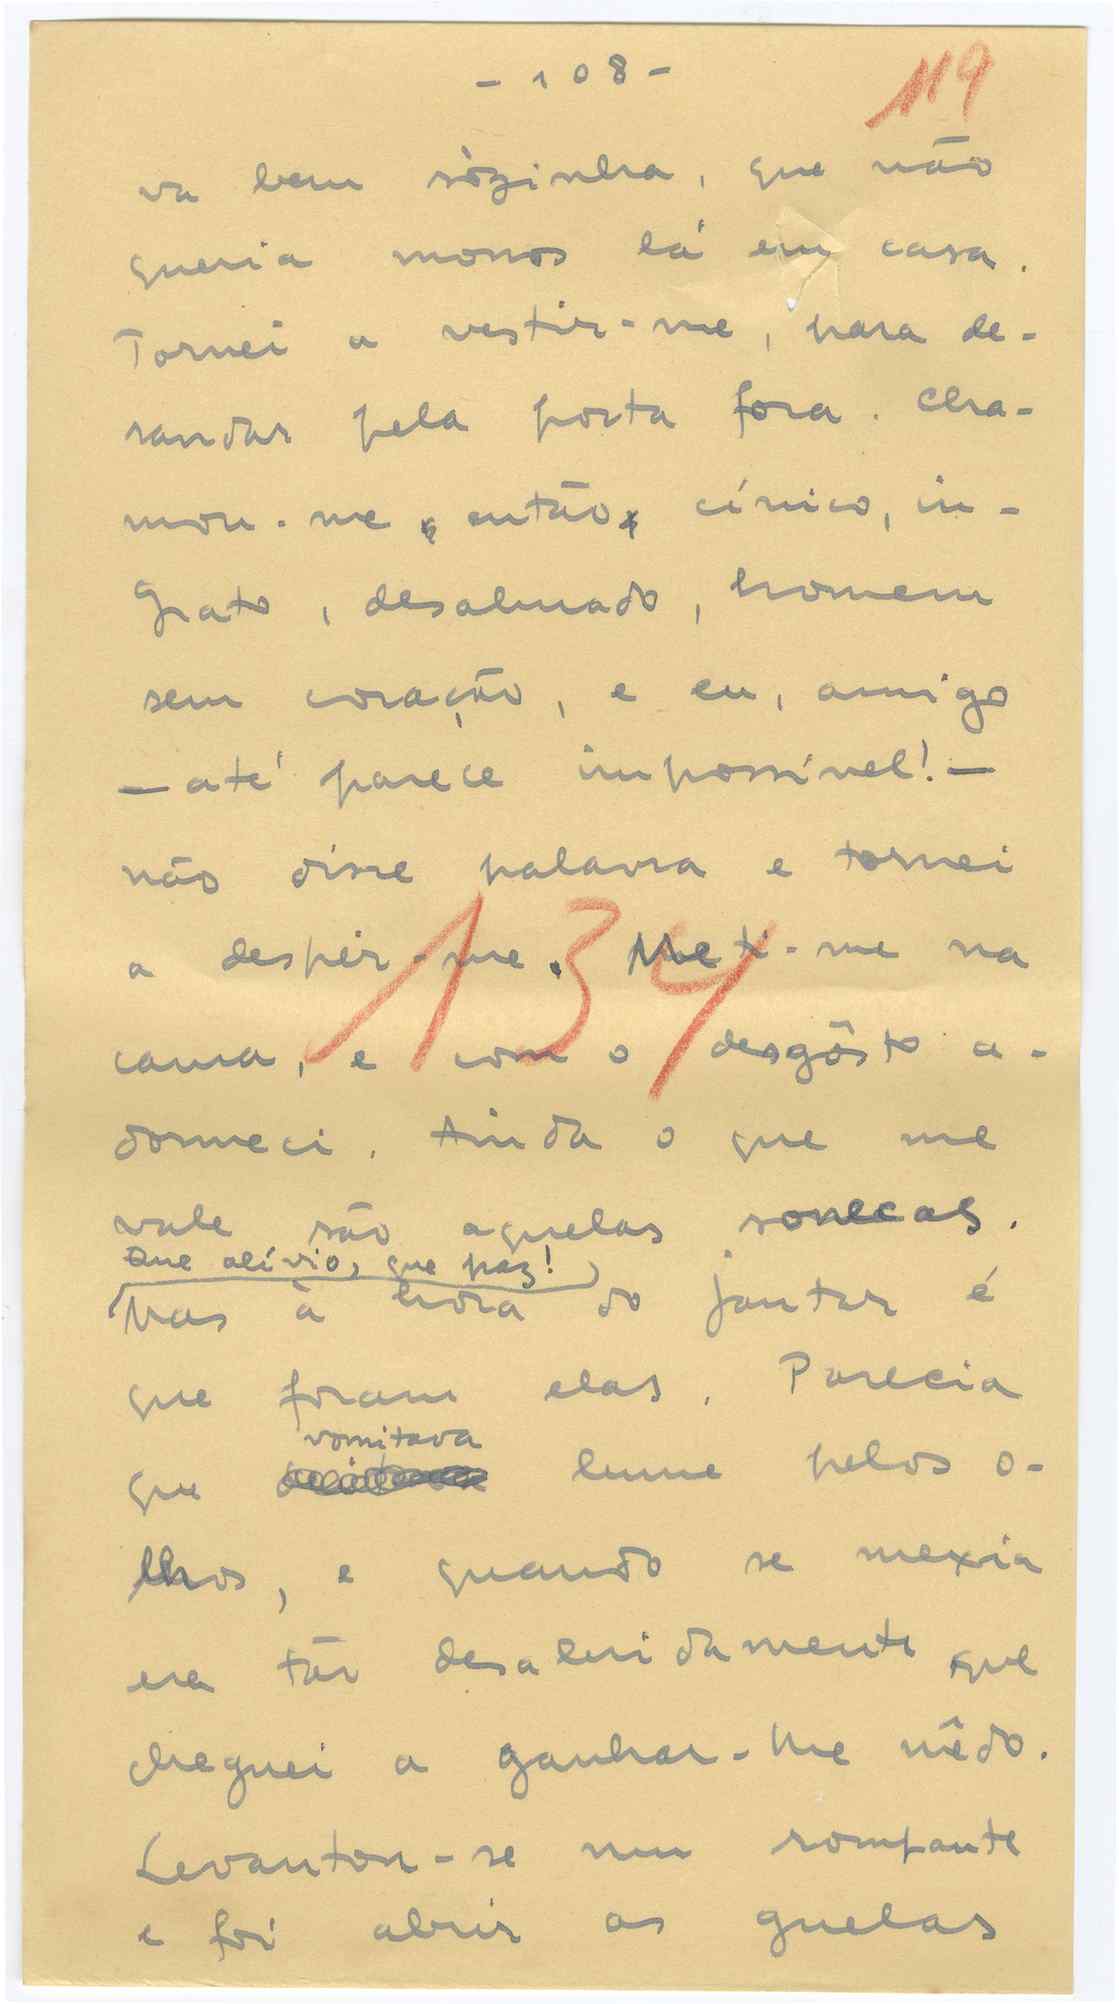 - 108 -
119
va bem sòzinha, que não
queria monos lá em casa.
Tornei a vestir-me, para de-
sandar pela porta fora. Cha-
mou-me então cínico, in-
grato, desalmado, homem
sem coração, e eu, amigo
— até parece impossível! —
não disse palavra e tornei
a despir-me. Meti-me na
134
cama, e com o desgôsto a-
dormeci. Ainda o que me
vale são aquelas sonecas.
Que alívio, que paz!
Mas à hora do jantar é
que foram elas. Parecia
vomitava
que lume pelos o-
lhos, e quando se mexia
era tão desabridamente que
cheguei a ganhar-lhe mêdo.
Levantou-se num rompante
e foi abrir as guelas